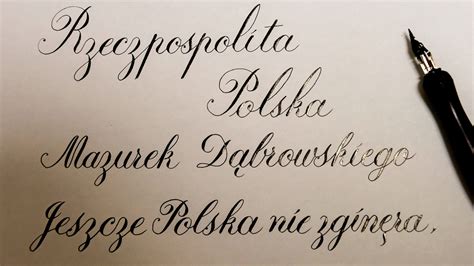 Rzeczpospolita
Polska
Mazurek Dąbrowskiego
Jeszcze Polska nie zginęła,